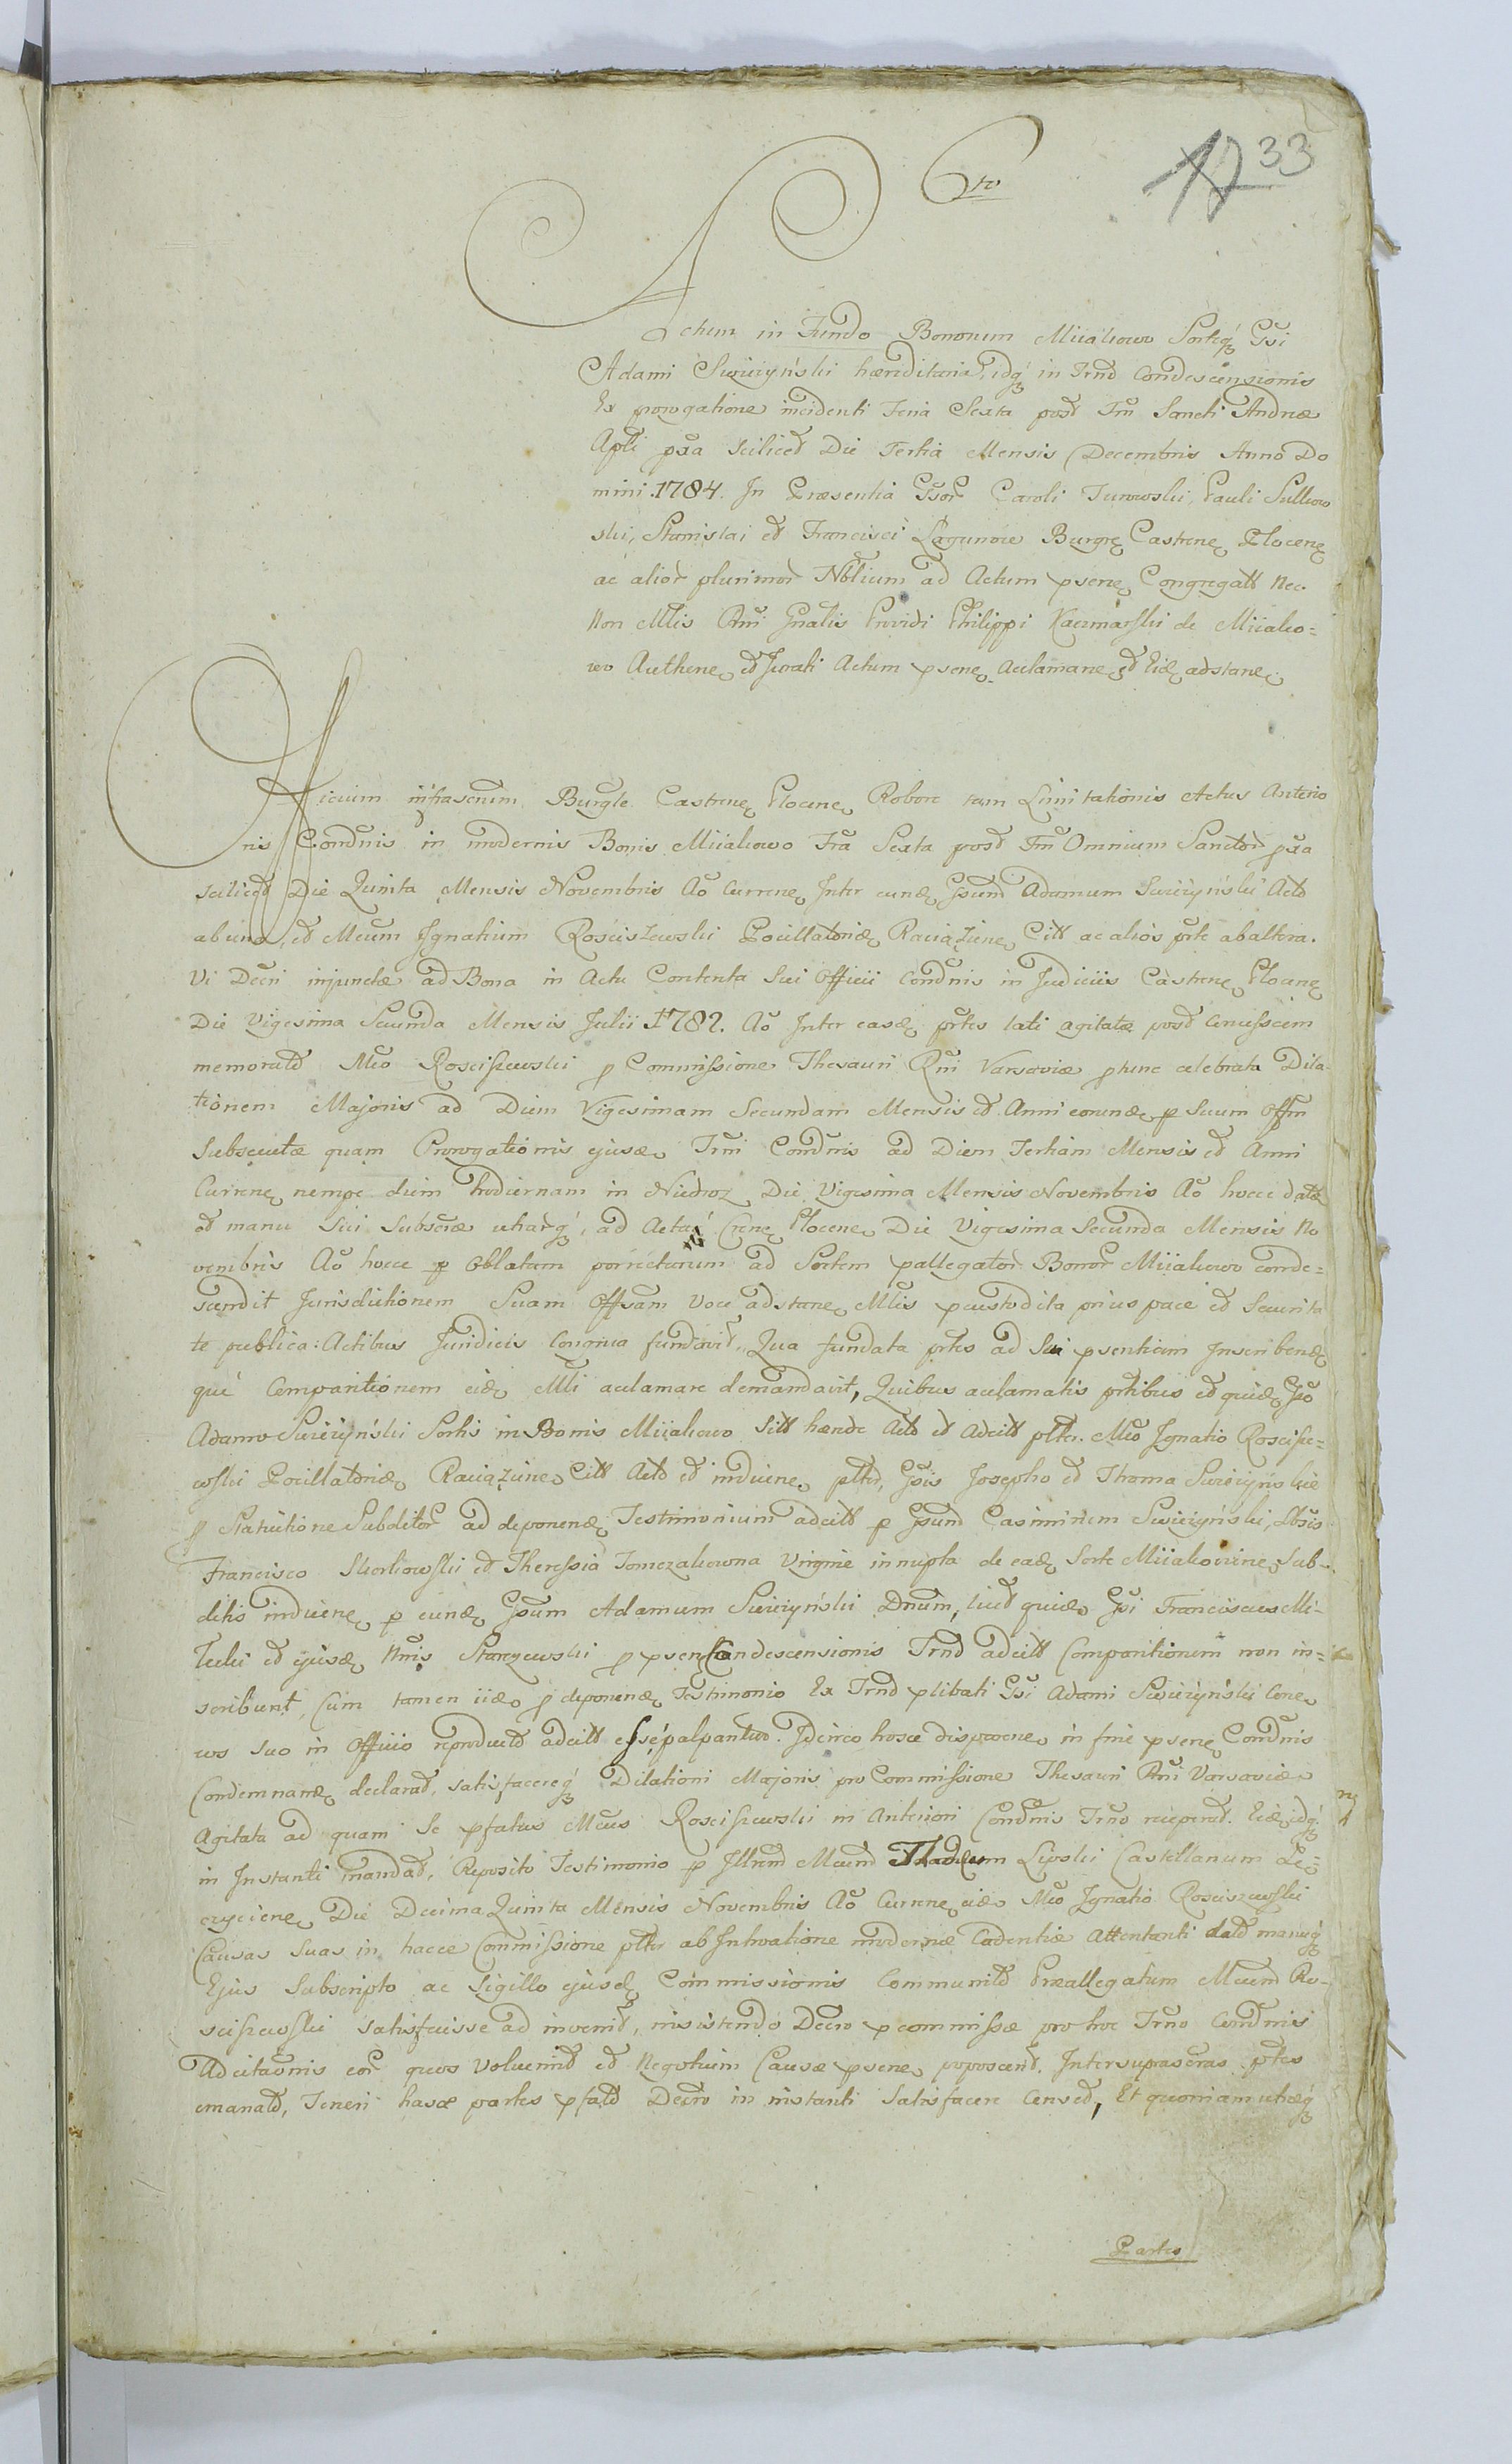 17 33
Actum in Fundo Bonorum Miiakowo Sorteq́ Gsi
Adami Swiirzyński hæreditaria, idq́ in Trnō Condescensionis
Ex prorogatione incidenti Feria Sexta post Fm̄ Sancti Andreæ
Apli pxa scilicet Die Tertia Mensis Decembris Anno Do
mini 1784. In Præsentia Gsor Caroli Turowski, Pauli Sulkow
ski, Stanislai et Francisci Lagunæ Burgræ Castrenæ Plocenæ
ac alior plurimor Nblium ad Actum psene Congregatt Nec.
Non Mlis Rni Gnalis Providi Philippi Kaczmarski de Miiako=
wo Authene et Jurati Actum psene acclamane et Eid adstane
Officium infrascrium Burgle Castrene Plocene Robore tam Limitationis Actus Anterio
ris Condnis in modernis Bonis Miiakowo Fra Sexta post Fm Omnium Sanctor pxa
scilicet Die Quinta Mensis Novembris Ao Currene Inter eund Gsum Adamum Swiirzyński Act
ab una, et Mcum Ignatium Rosciszewski Pocillatorid Raciązine Citt ac alios prte ab altera.
Vi Decri injunctæ ad Bona in Actu Contenta Sui Officii Condnis in Judiciis Castrene Plocene
Die Vigesima Secunda Mensis Julii 1782. Ao Inter easd prtes lati agitatæ post
memoratt Mco Rosciszewski p Commissione Thesauri Rni Varsaviæ ptunc celebrata Dila
tionem Majoris ad Diem Vigesimam Secundam Mensis et Anni eorund p Suum Offm
Subsecutæ quam Prorogationis ejusd Trni Condnis ad Diem Tertiam Mensis et Anni
Currene nempe diem hodiernam in Niedroz Die Vigesima Mensis Novembris Ao hocce datæ
et manu Sui Subscræ utarq́, ad Acta Crene Plocene Die Vigesima Secunda Mensis No
vembris Ao hocce p Oblatam porrectarum ad Sortem pallegator Bonor Miiakowo conde=
scendit Jurisdictionem Suam Offsam Voce adstane Mlis pcustodita prius pace et Securita
te publica: Actibus Juridicis Congrua fundavit, Qua fundata prtes ad Sui psentiam Inscribend
que Comparitionem eid Mli acclamare demandavit, Quibus acclamatis prtibus et quid Gso
Adamo Swiirzyński Sortis in Bonis Miiakowo Sitt hærede Act et Adcitt plter. Mco Ignatio Roscisze=
wski Pocillatorid Raciązine Citt Act et induene plter, Gsis Josepho et Thoma Swiirzynskie
p Statuitione Subditor ad deponend Testimonium adcitt p Gsum Casimirum Swiirzyński, Lbsis
Francisco Skorkowski et Theressia Tomczakowna Virgine innupta de ead Sorte Miiakowine Sub=
ditis induene p eund Gsum Adamum Swiirzyński Dnum, licet quid Gsi Franciscus Mi=
lecki et ejusd Nnis Starzewski p psen Condescensionis Trno adcitt Comparitionem non in=
scribunt, Cum tamen iid p deponend Testimonio Ex Trno plibati Gsi Adami Swiirzyński Cone
us suo in Officio reproductt adcitt esse palpantur. Idcirco hosce disparene in fine psene Condnis
Condemnand declarat, satisfacereq́ Dilationi Majoris pro Commissione Thesauri Rni Varsaviæ
Agitata ad quam Se pfatus Mcus Rosciszewski in Anteriori Condnis Trno recepert. Eid idq́
in Instanti mandat, Reposito Testimonio p Illrem Mcum Thadeum Lipski Castellanum Łę=
czyciene Die Decima Quinta Mensis Novembris Ao Currene eid Mco Ignatio Rosciszewski
Causas Suas in hacce Commissione plter ab Introatione modernæ Cadentiæ Attentanti datt manuq́
Ejus Subscripto ac Sigillo ejusd Commissionis Communitt Præallegatum Mcum Ro=
sciszewski satisfecisse ad invenit, insistendo Decro pcommissæ pro hoc Trno Condnis
Adcitaonis eor quos Voluerint et Negotium Causæ psene poposcerit. Inter suprascras prtes
emanatt, Teneri hasce partes pfatt Decro in instanti Satisfacere Censet, Et quoniam utræq́
Partes